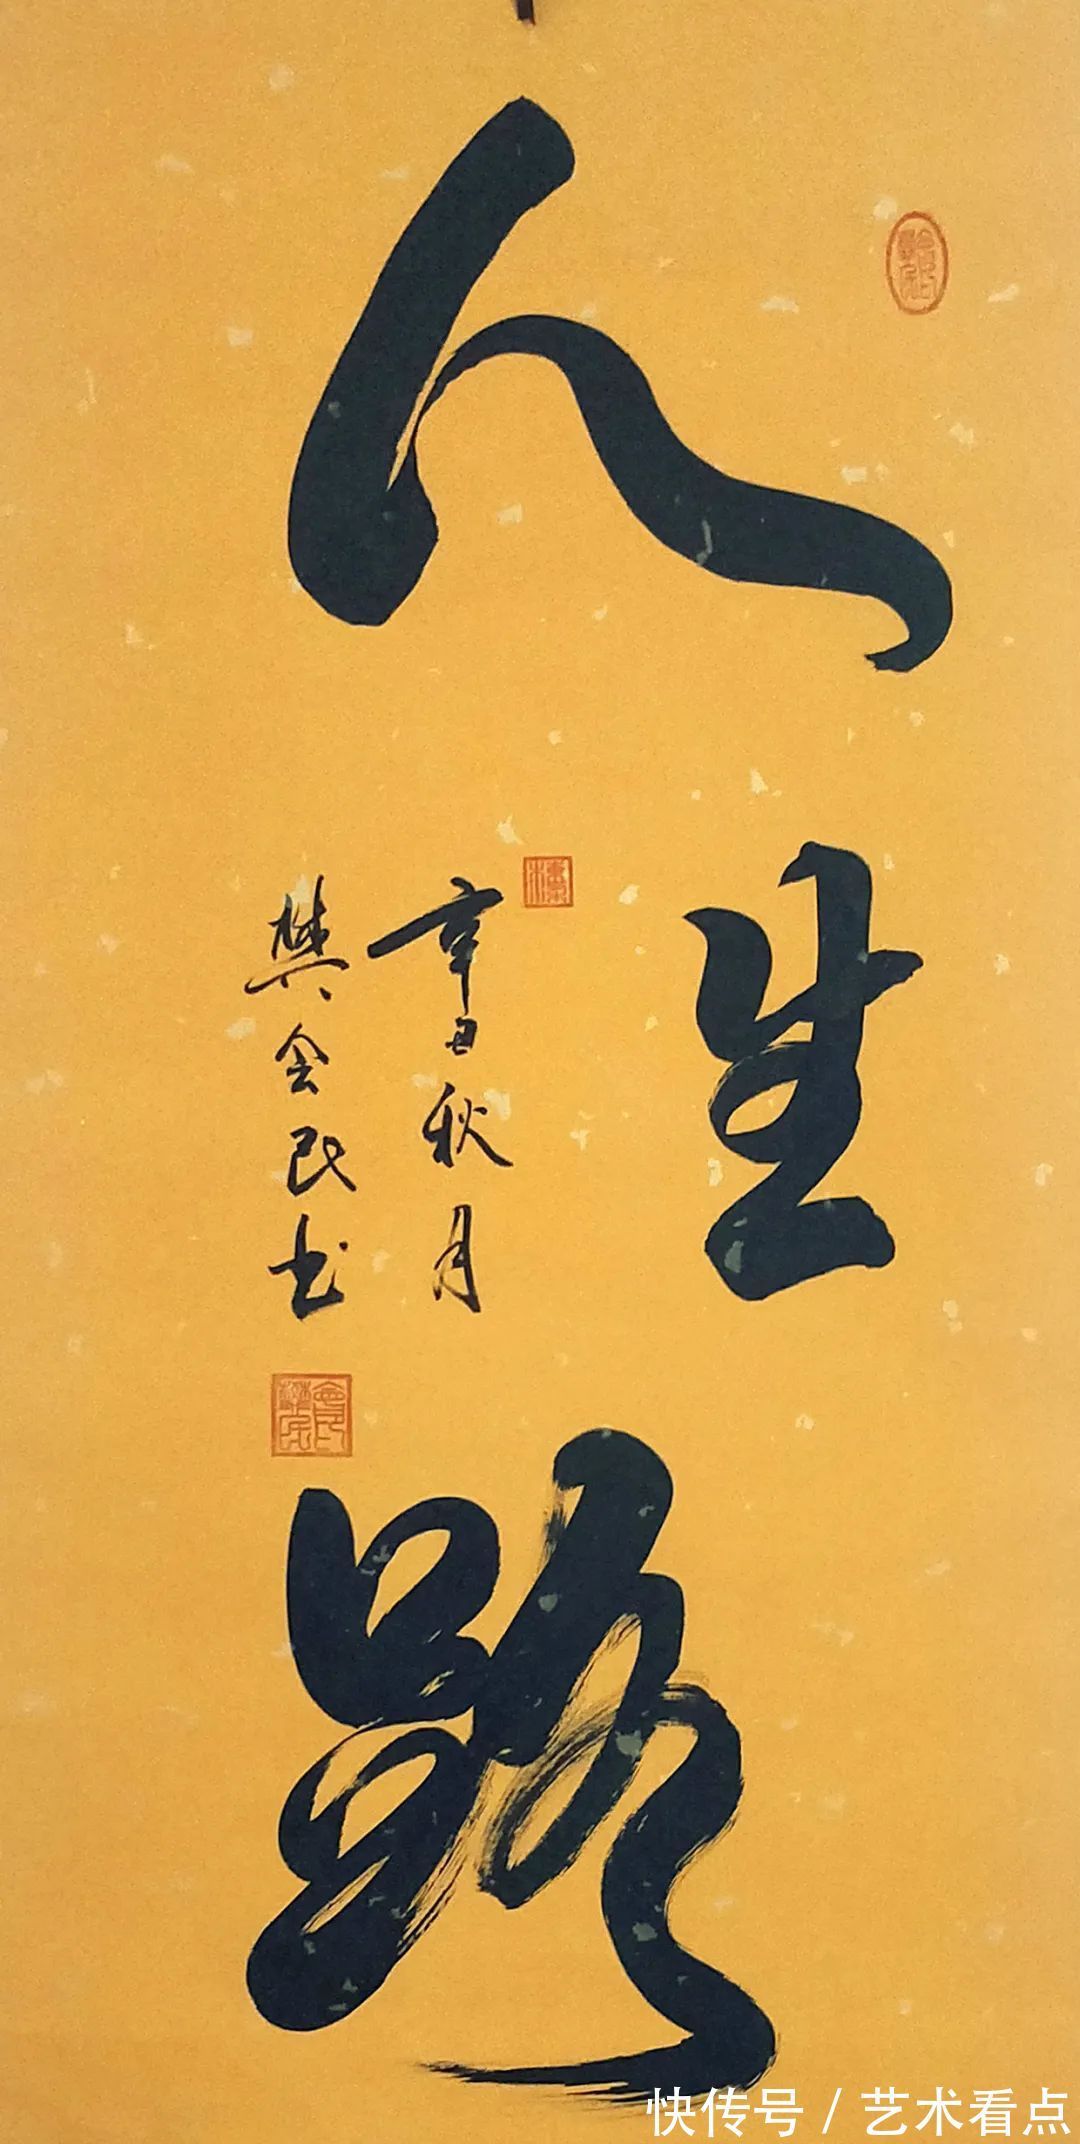 人生路
辛丑秋月
樊会民书
快传号 / 艺术看点